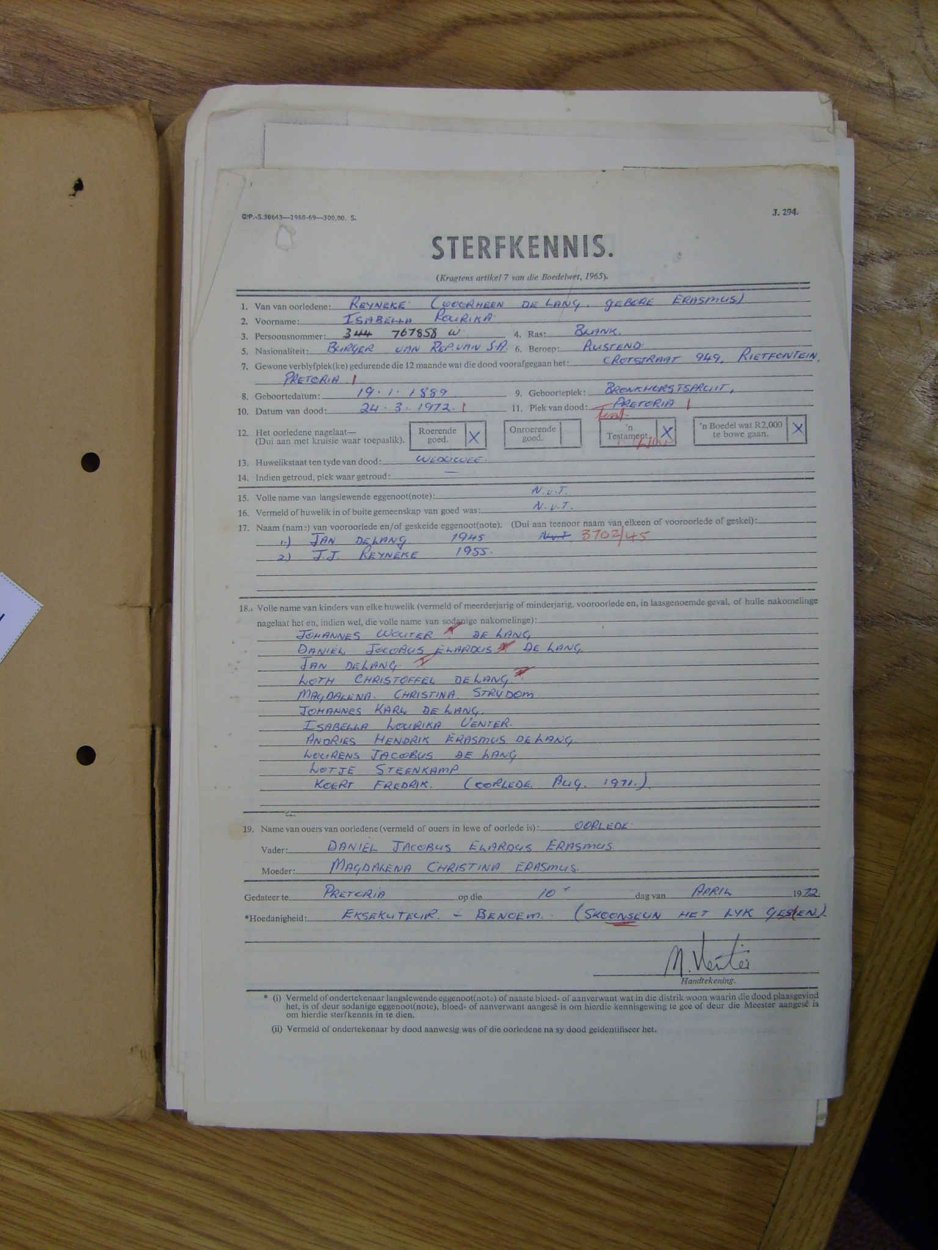 G.P.-S.30643—1968-69—300,00. S. J. 294.
STERFKENNIS.
(Kragtens artikel 7 van die Boedelwet, 1965).
1. Van van oorledene: REYNEKE (VOORHEEN DE LANG, GEBORE ERASMUS)
2. Voorname: ISABELLA LOURIKA
3. Persoonsnommer: 344 767858 W 4. Ras: BLANK.
5. Nasionaliteit: BURGER VAN REP. VAN S.A. 6. Beroep: RUSTEND
7. Gewone verblyfplek(ke) gedurende die 12 maande wat die dood voorafgegaan het: CROTSTRAAT 949, RIETFONTEIN,
PRETORIA
8. Geboortedatum: 19.1.1889 9. Geboorteplek: BRONKHORSTSPRUIT,
10. Datum van dood: 24.3.1972. 11. Plek van dood: PRETORIA
12. Het oorledene nagelaat— Roerende goed. X Onroerende goed. 'n Testament. X 'n Boedel wat R2,000 te bowe gaan. X
(Dui aan met kruisie waar toepaslik).
13. Huwelikstaat ten tyde van dood: WEDUWEE.
14. Indien getroud, plek waar getroud: —
15. Volle name van langslewende eggenoot(note): N.v.T.
16. Vermeld of huwelik in of buite gemeenskap van goed was: N.v.T.
17. Naam (name) van vooroorlede en/of geskeide eggenoot(note). (Dui aan teenoor naam van elkeen of vooroorlede of geskei):
1.) JAN DE LANG 1945 N.v.T 3702/45
2) J.J. REYNEKE 1955.
18. Volle name van kinders van elke huwelik (vermeld of meerderjarig of minderjarig, vooroorlede en, in laasgenoemde geval, of hulle nakomelinge
nagelaat het en, indien wel, die volle name van sodanige nakomelinge):
JOHANNES WOUTER DE LANG
DANIEL JACOBUS ELARDUS DE LANG
JAN DE LANG
LOTH CHRISTOFFEL DE LANG
MAGDALENA CHRISTINA STRYDOM
JOHANNES KARL DE LANG
ISABELLA LOURIKA VENTER
ANDRIES HENDRIK ERASMUS DE LANG
LOURENS JACOBUS DE LANG
LOTJE STEENKAMP
KOERT FREDRIK. (OORLEDE AUG. 1971.)
19. Name van ouers van oorledene (vermeld of ouers in lewe of oorlede is): OORLEDE
Vader: DANIEL JACOBUS ELARDUS ERASMUS
Moeder: MAGDALENA CHRISTINA ERASMUS
Gedateer te PRETORIA op die 10 dag van APRIL 1972
*Hoedanigheid: EKSEKUTEUR - BENOEM. (SKOONSEUN HET LYK GESIEN)
M. Venter
Handtekening.
* (i) Vermeld of ondertekenaar langslewende eggenoot(note) of naaste bloed- of aanverwant wat in die distrik woon waarin die dood plaasgevind
het, is of deur sodanige eggenoot(note), bloed- of aanverwant aangesê is om hierdie kennisgewing te gee of deur die Meester aangesê is
om hierdie sterfkennis in te dien.
(ii) Vermeld of ondertekenaar by dood aanwesig was of die oorledene na sy dood geïdentifiseer het.